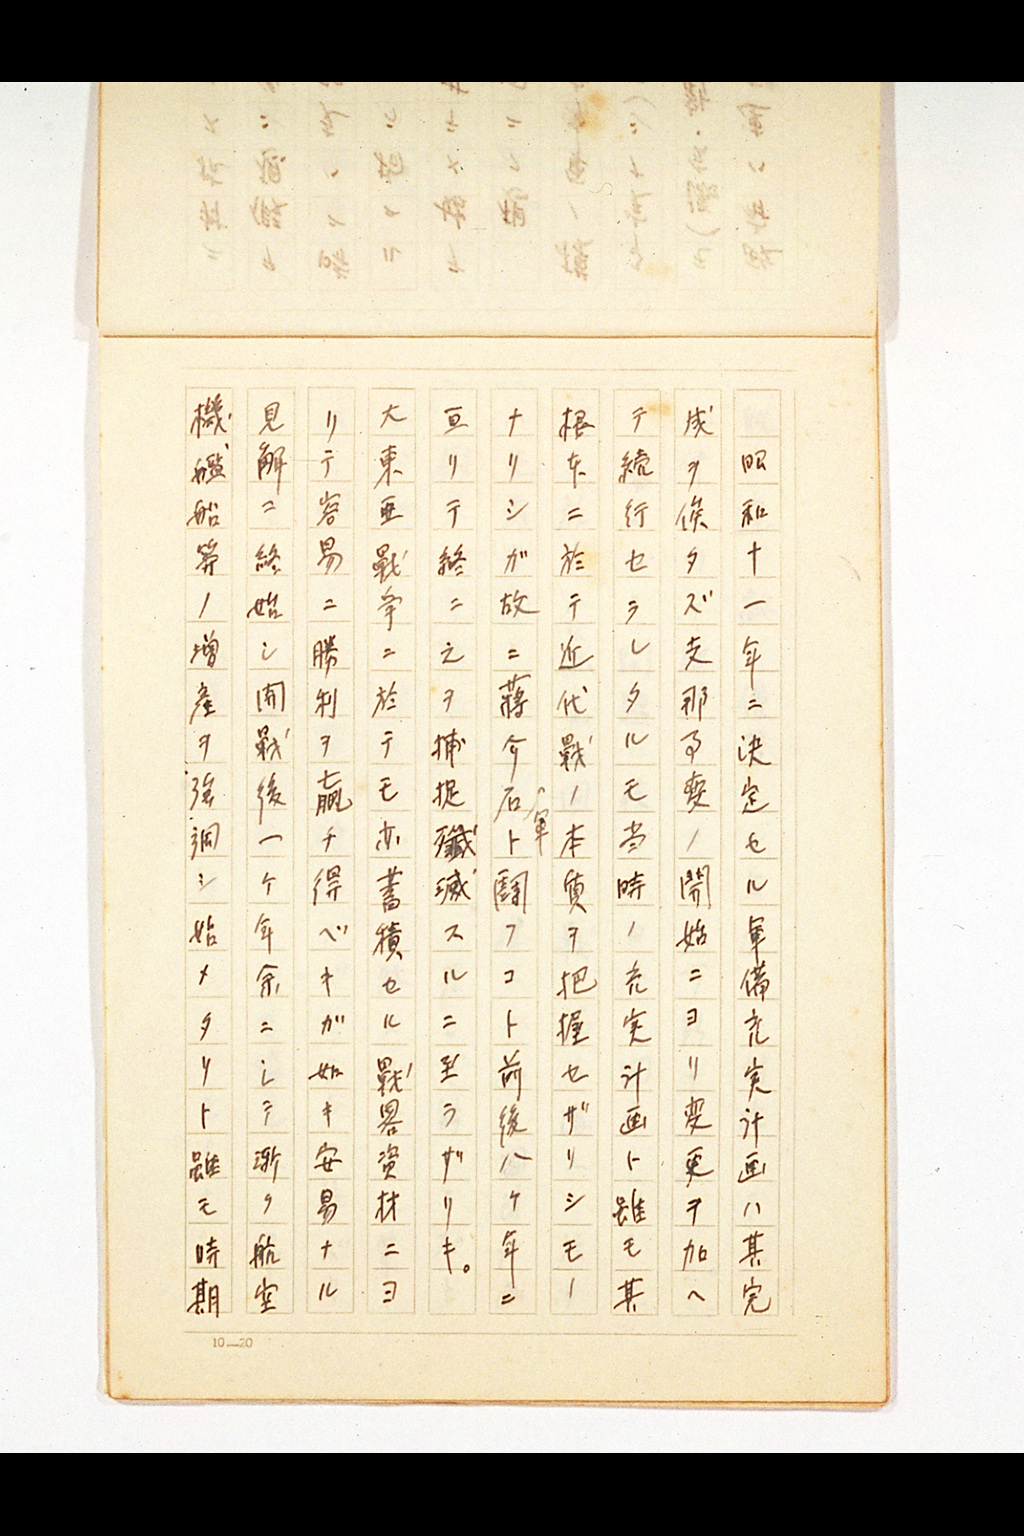 昭和十一年ニ決定セル軍備充実計画ハ其完
成ヲ俟タズ支那事変ノ開始ニヨリ変更ヲ加ヘ
テ続行セラレタルモ当時ノ充実計画ト雖モ其
根本ニ於テ近代戦ノ本質ヲ把握セザリシモノ
ナリシガ故ニ蒋介石軍ト闘フコト前後八ケ年ニ
亘リテ終ニ之ヲ捕捉殲滅スルニ至ラザリキ。
大東亜戦争ニ於テモ亦蓄積セル戦畧資材ニヨ
リテ容易ニ勝利ヲ贏チ得ベキガ如キ安易ナル
見解ニ終始シ開戦後一ケ年余ニシテ漸ク航空
機艦船等ノ増産ヲ強調シ始メタリト雖モ時期
10—20